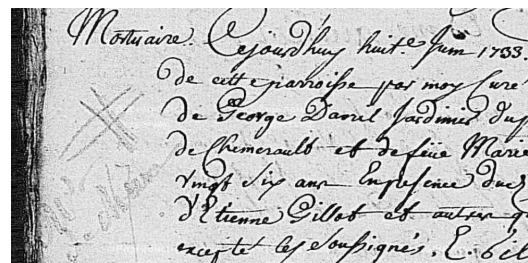 Mortuaire. Cejourd'huy huite Juin 1733.
de cette parroisse par moy Curé
de George Daniel Jardinier du
de Chemerault et de feüe Marie
vingt Six ans En presence du
d'Etienne Gillot et autres
excepté les Soussignés.